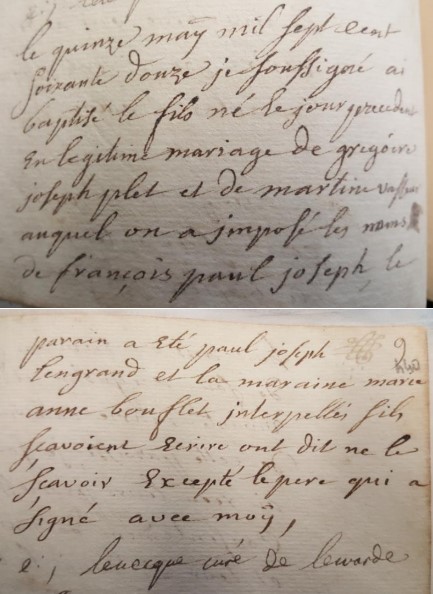 le quinze maÿ mil sept cent
soixante douze je soussigné ai
baptisé le fils né le jour precedent
en legitime mariage de grégoire
joseph plet et de martine vasseur
auquel on a jmposé les noms
de françois paul joseph, le
parain a eté paul joseph
Lengrand et la maraine marie
anne bouflet jnterpellés sils
scavoient ecrire ont dit ne le
scavoir Excepté le pere qui a
signé avec moÿ,
curé de lewarde